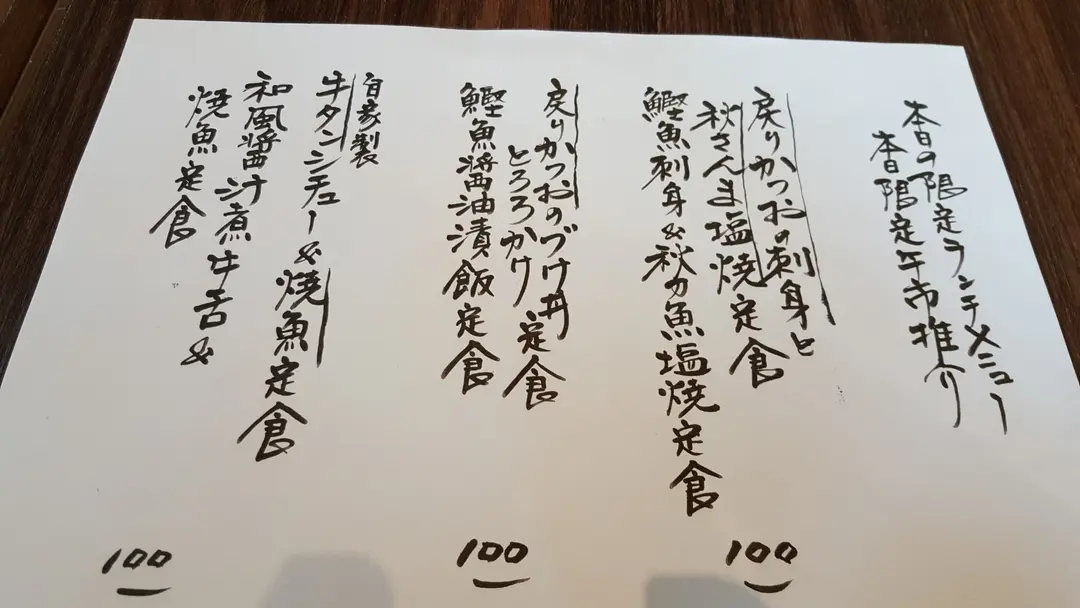 本日の限定ランチメニュー
本日限定午市推介
戻りかつおの刺身と
秋さんま塩焼定食
鰹魚刺身&秋刀魚塩焼定食
100
戻りかつおのづけ丼
とろろかけ定食
鰹魚醤油漬飯定食
100
自家製
牛タンシチュー&焼魚定食
和風醤汁煮牛舌&
焼魚定食
100